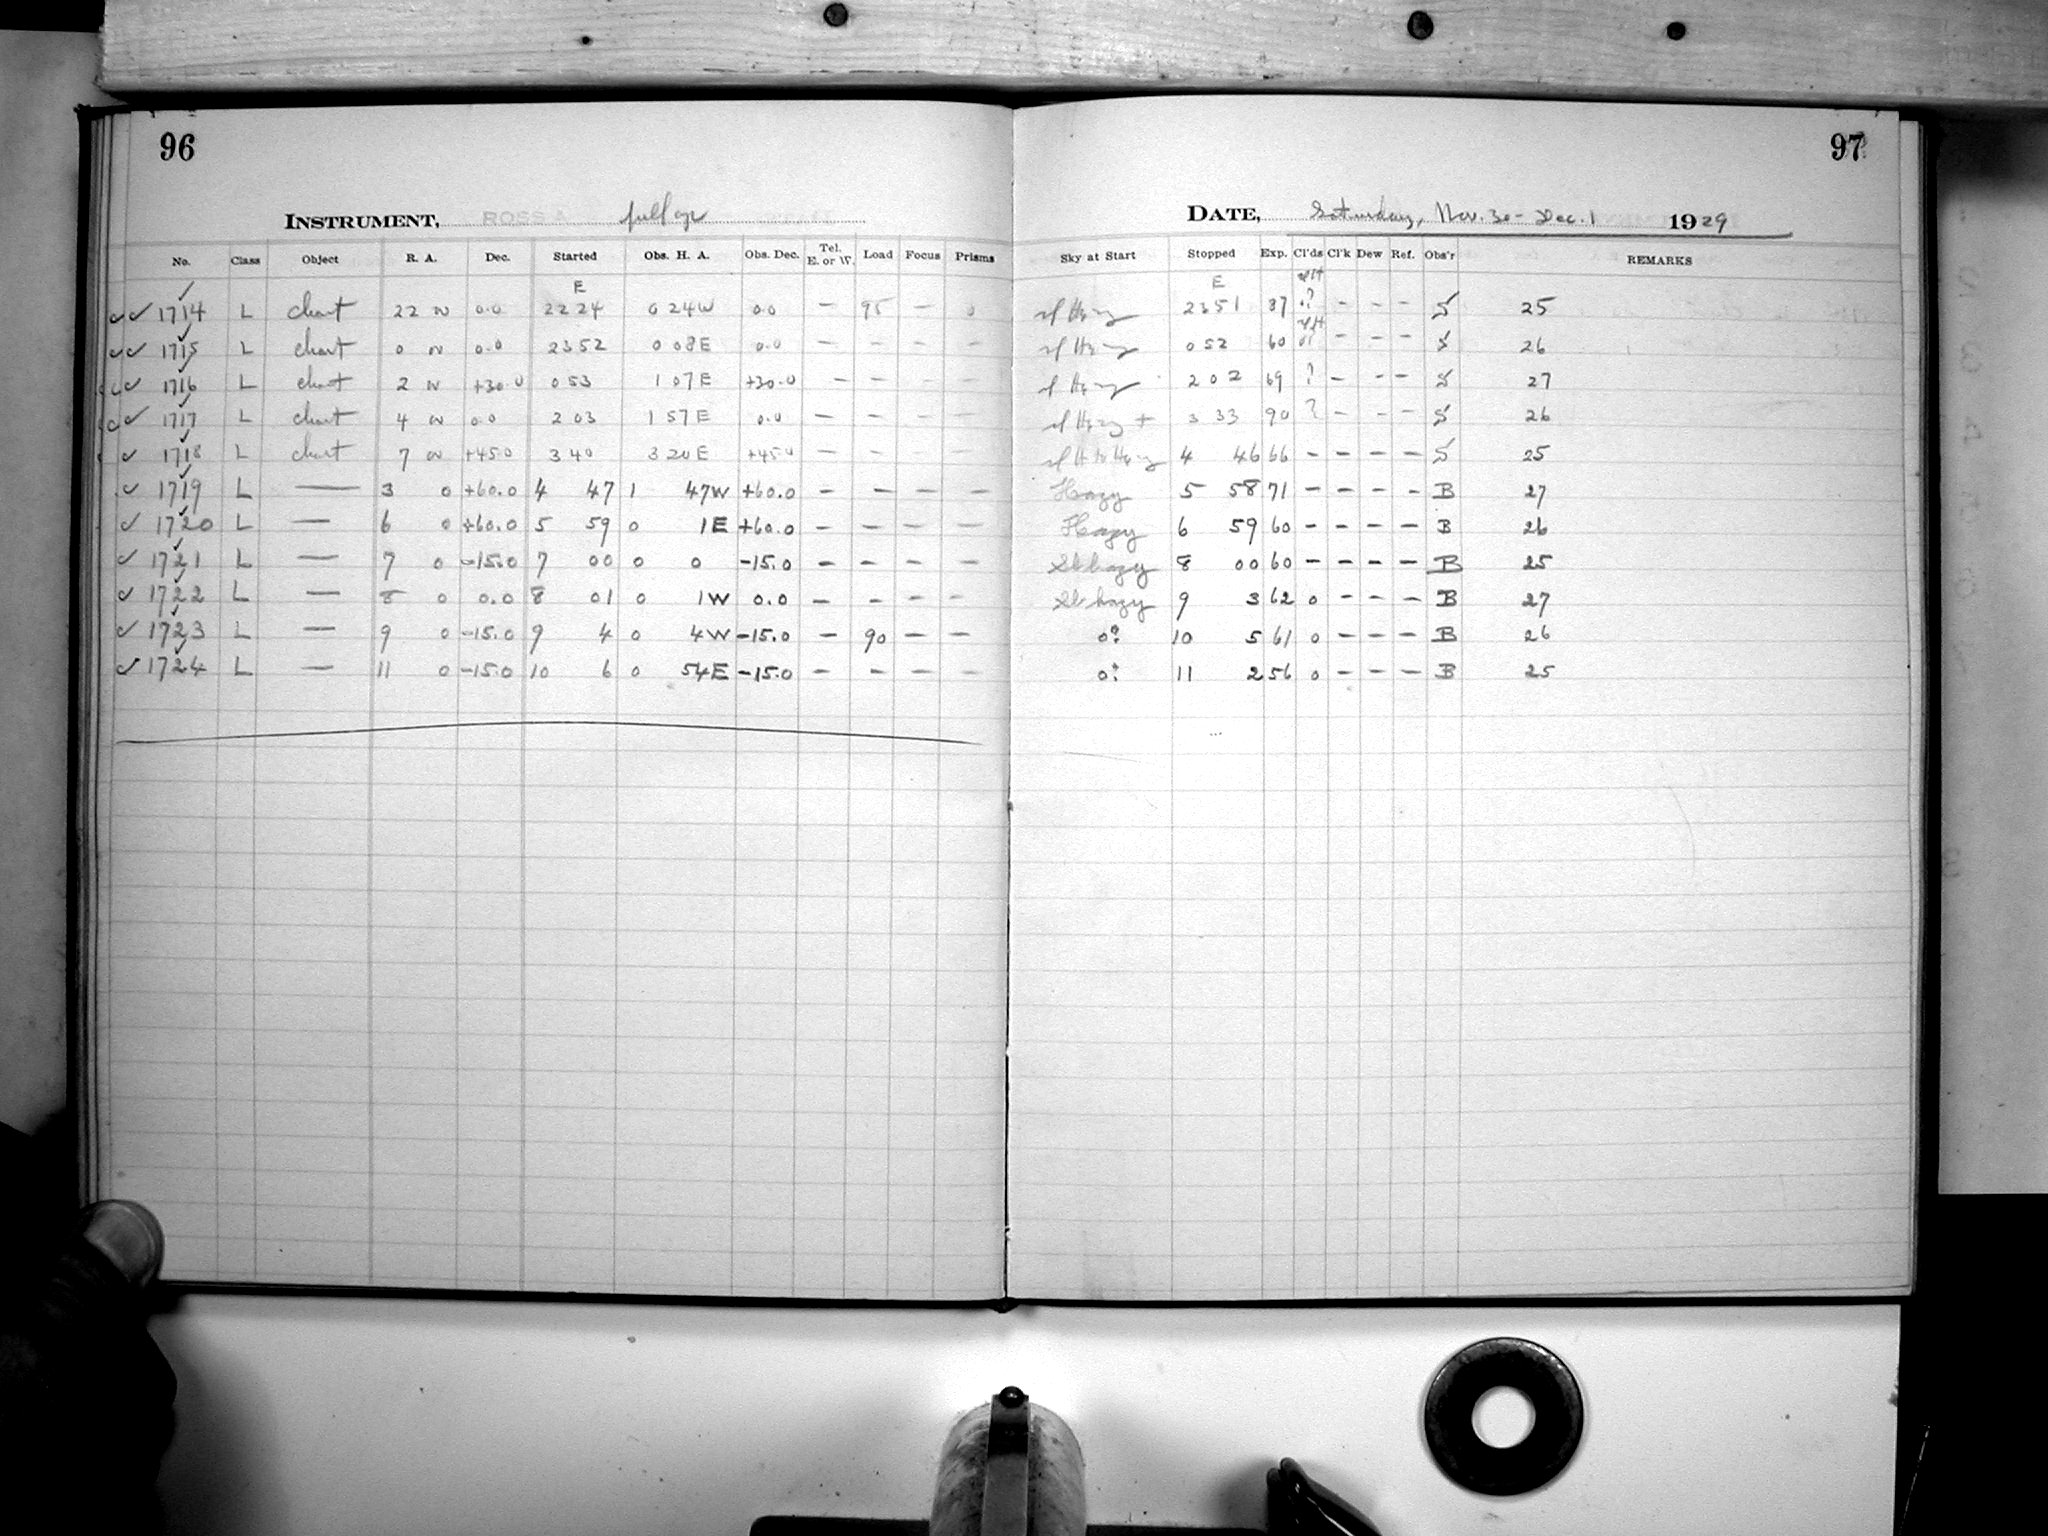 96
INSTRUMENT, ROSS A full ap
No. Class Object R. A. Dec. Started Obs. H. A. Obs. Dec. Tel. E. or W. Load Focus Prisms
E
1714 L chart 22 N 0.0 22 24 0 24W 0.0 — 95 —
1715 L chart 0 N 0.0 23 52 0 08E 0.0 — — — —
1716 L chart 2 N +30.0 0 53 1 07E +30.0 — — — —
1717 L chart 4 N 0.0 2 03 1 57E 0.0 — — — —
1718 L chart 7 N +45.0 3 40 3 20E +45.0 — — — —
1719 L — 3 0 +60.0 4 47 1 47W +60.0 — — — —
1720 L — 6 0 +60.0 5 59 0 1E +60.0 — — — —
1721 L — 7 0 -15.0 7 00 0 0 -15.0 — — — —
1722 L — 8 0 0.0 8 01 0 1W 0.0 — — — —
1723 L — 9 0 -15.0 9 4 0 4W -15.0 — 90 — —
1724 L — 11 0 -15.0 10 6 0 54E -15.0 — — — —
97
DATE, Saturday, Nov. 30 - Dec. 1 1929
Sky at Start Stopped Exp. Cl'ds Cl'k Dew Ref. Obs'r REMARKS
E
23 51 87 ? - - - S 25
0 52 60 - - - S 26
2 02 69 ? - - - S 27
3 33 90 ? - - - S 26
4 46 66 - - - - S 25
Hazy 5 58 71 - - - - B 27
Hazy 6 59 60 - - - - B 26
Sl hazy 8 00 60 - - - - B 25
Sl hazy 9 3 62 0 - - - B 27
0? 10 5 61 0 - - - B 26
0? 11 2 56 0 - - - B 25